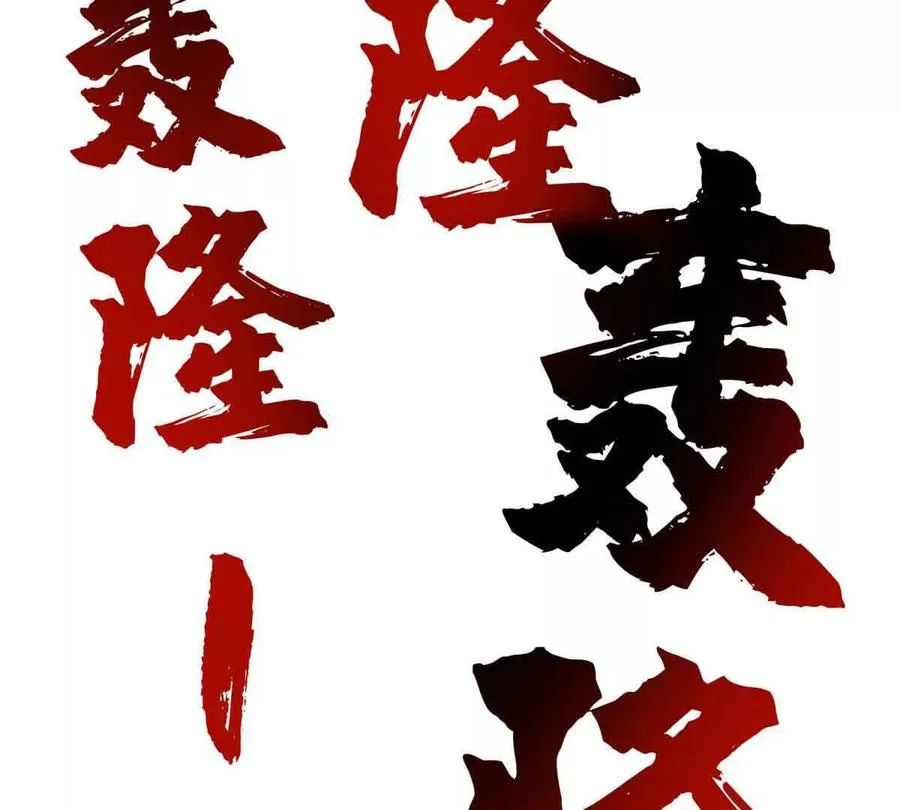 轰隆
隆
轰隆